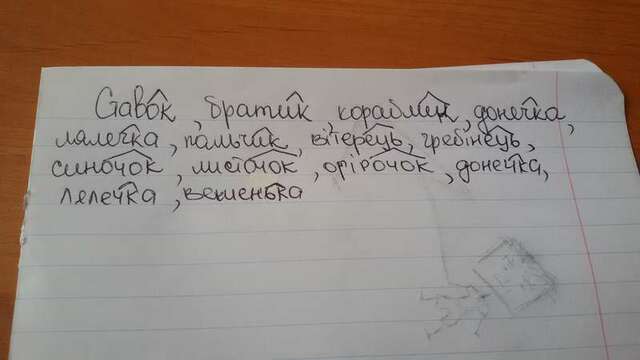 Ставок, братик, кораблик, донечка,
лялечка, пальчик, вітерець, гребінець,
синочок, листочок, огірочок, донечка,
лелечка, вешенька